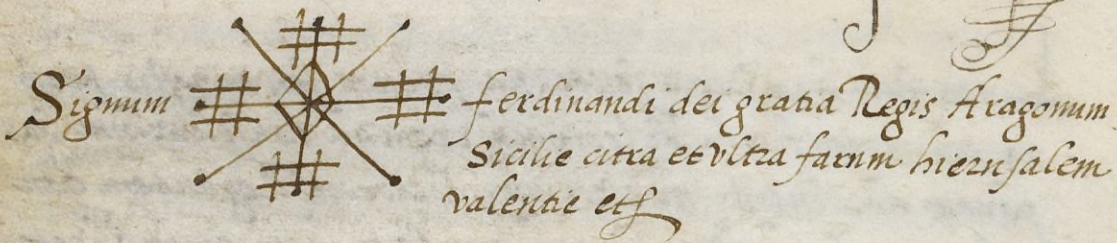 Signum ferdinandi dei gratia Regis Aragonum
Sicilie citra et vltra farum hierusalem
valentie etc